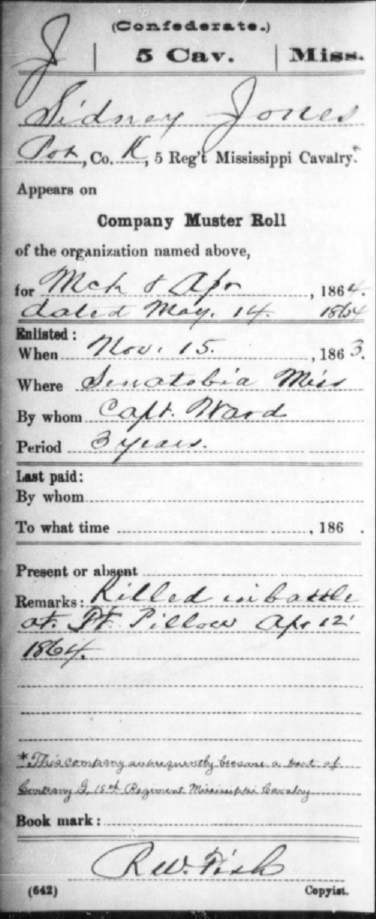 (Confederate.)
J | 5 Cav. | Miss.
Sidney Jones
Pvt, Co. K, 5 Reg't Mississippi Cavalry.*
Appears on
Company Muster Roll
of the organization named above,
for Mch & Apr, 1864.
dated May. 14. 1864
Enlisted:
When Nov. 15., 1863.
Where Senatobia Miss
By whom Capt. Ward
Period 3 years.
Last paid:
By whom
To what time, 186 .
Present or absent
Remarks: Killed in battle
at Ft. Pillow Apr 12
1864.
*This company subsequently became a part of
Company G, 18th Regiment Mississippi Cavalry
Book mark:
R.W. Fish
(642) Copyist.